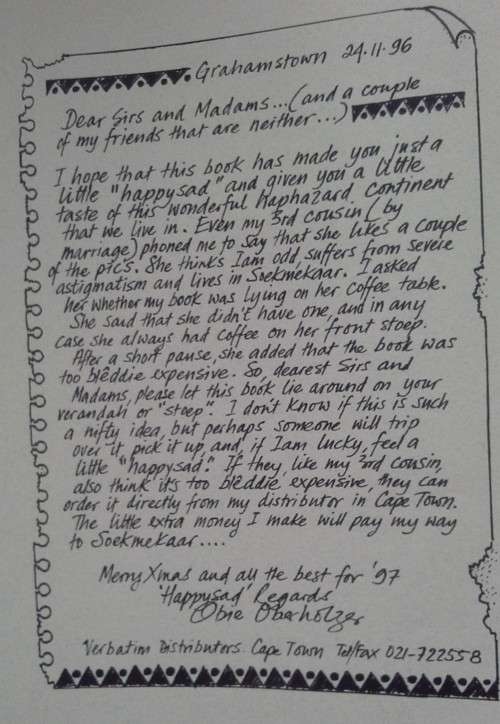 Grahamstown 24.11.96
Dear Sirs and Madams...(and a couple
of my friends that are neither...)
I hope that this book has made you just a
little "happysad" and given you a little
taste of this wonderful haphazard continent
that we live in. Even my 3rd cousin (by
marriage) phoned me to say that she likes a couple
of the pics. She thinks I am odd, suffers from severe
astigmatism and lives in Soekmekaar. I asked
her whether my book was lying on her coffee table.
She said that she didn't have one, and in any
case she always had coffee on her front stoep.
After a short pause, she added that the book was
too blêddie expensive. So, dearest Sirs and
Madams, please let this book lie around on your
verandah or "stoep". I don't know if this is such
a nifty idea, but perhaps someone will trip
over it, pick it up, and, if I am lucky, feel a
little "happysad". If they, like my 3rd cousin,
also think it's too blêddie expensive, they can
order it directly from my distributor in Cape Town.
The little extra money I make will pay my way
to Soekmekaar....
Merry Xmas and all the best for '97
'Happysad' Regards
Obie Oberholzer
Verbatim Distributors. Cape Town Tel/Fax 021-722558